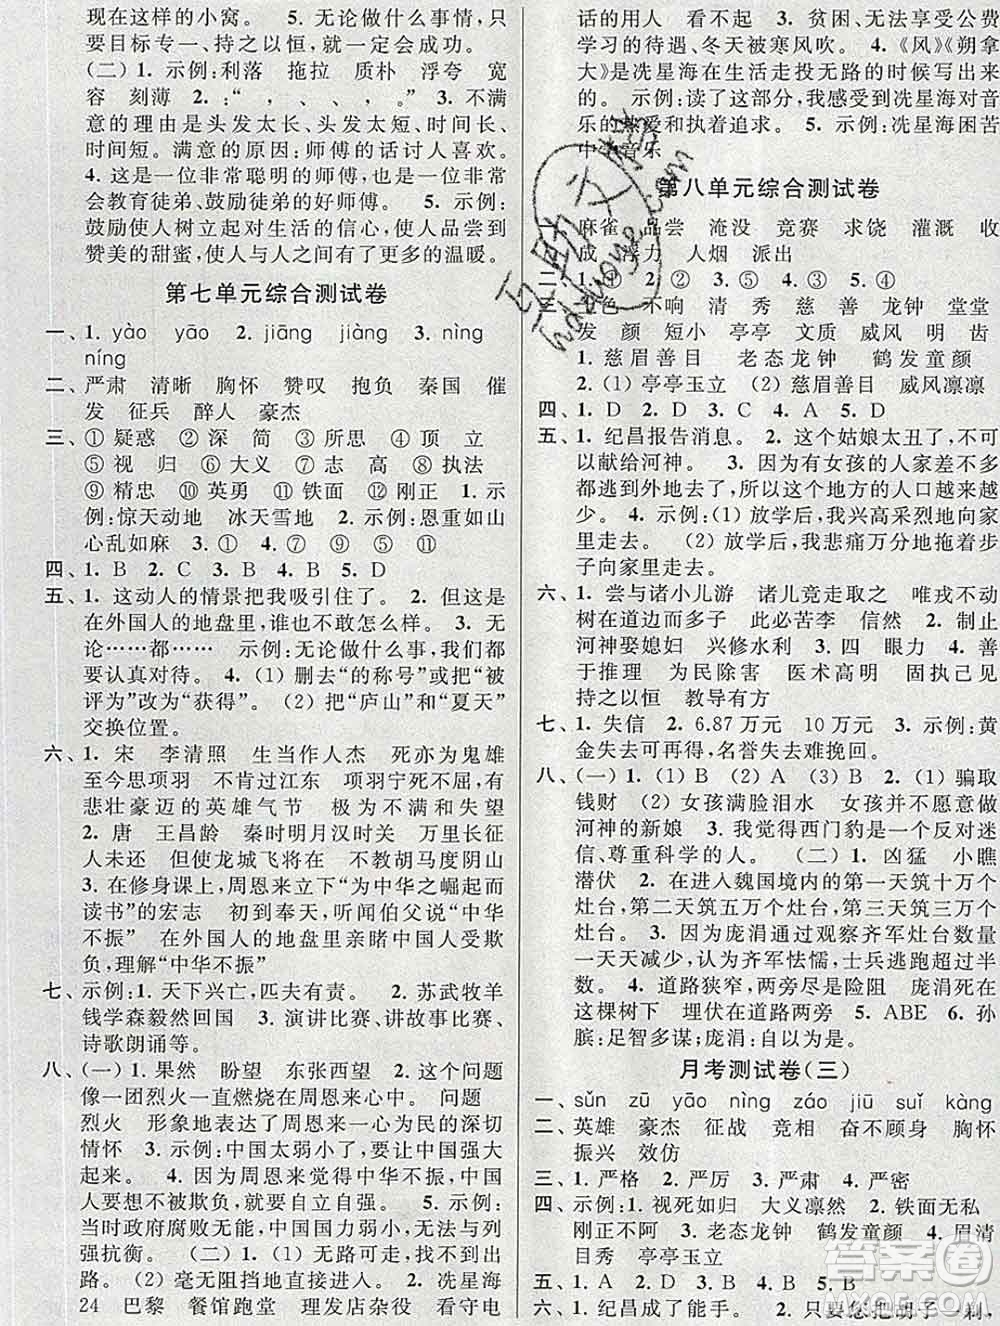 现在这样的小窝。 5. 无论做什么事情，只
要目标专一、持之以恒，就一定会成功。
(二) 1. 示例：利落 拖拉 质朴 浮夸 宽
容 刻薄 2. ：“ ， 、 、 ， 。” 3. 不满
意的理由是头发太长、头发太短、时间长、
时间短。满意的原因：师傅的话讨人喜欢。
4. 这是一位非常聪明的师傅，也是一位善于
教育徒弟、鼓励徒弟的好师傅。 5. 示例：
鼓励使人树立起对生活的信心，使人品尝到
赞美的甜蜜，使人与人之间有了更多的温暖。
第七单元综合测试卷
一、1. yào yāo 2. jiāng jiàng 3. nìng
níng
二、严肃 清晰 胸怀 赞叹 抱负 秦国 催
发 征兵 醉人 豪杰
三、① 疑惑 ② 深 简 ③ 所思 ④ 顶 立
⑤ 视 归 ⑥ 大义 ⑦ 志 高 ⑧ 执法
⑨ 精忠 ⑩ 英勇 ⑪ 铁面 ⑫ 刚正 1. 示
例：惊天动地 冰天雪地 2. 示例：恩重如山
心乱如麻 3. ① 4. ⑦ 5. ⑪
四、1. B 2. C 3. B 4. A 5. D
五、1. 这动人的情景把我吸引住了。 2. 但这是
在外国人的地盘里，谁也不敢怎么样。 3. 无
论……都…… 示例：无论做什么事，我们都
要认真对待。 4. (1) 删去“的称号”或把“被
评为”改为“获得”。 (2) 把“庐山”和“夏天”
交换位置。
六、1. 宋 李清照 生当作人杰 死亦为鬼雄
至今思项羽 不肯过江东 项羽宁死不屈，有
悲壮豪迈的英雄气节 极为不满和失望
2. 唐 王昌龄 秦时明月汉时关 万里长征
人未还 但使龙城飞将在 不教胡马度阴山
3. 在修身课上，周恩来立下“为中华之崛起而
读书”的宏志 初到奉天，听闻伯父说“中华
不振” 在外国人的地盘里亲睹中国妇女受欺
负，理解“中华不振”
七、示例：1. 天下兴亡，匹夫有责。 2. 苏武牧羊
钱学森毅然回国 3. 演讲比赛、讲故事比赛、
诗歌朗诵等。
八、(一) 1. 果然 盼望 东张西望 2. 这个问题
像一团烈火一直燃烧在周恩来心中。 问题
烈火 形象地表达了周恩来一心为民的深切
情怀 3. 示例：中国太弱小了，要让中国强大
起来。 4. 因为周恩来知道中华不振，中国
人要想不被欺负，就要独立自强。 5. 示例：
当时政府腐败无能，中国国力弱小，无法与列
强抗衡。 (二) 1. (1) 无路可走，找不到出
路。 (2) 毫无阻挡地直接进入。 2. 冼星海
24 巴黎 餐馆跑堂 理发店杂役 看守电
话的用人 看不起 3. 贫困、无法享受公费
学习的待遇、冬天被寒风吹。 4.《风》《朔拿
大》是冼星海在生活走投无路的时候写出来
的。 示例：读了这部分，我感受到冼星海对音
乐的热爱和执着追求。 5. 示例：冼星海困苦
中学音乐
第八单元综合测试卷
麻雀 品尝 淹没 竞赛 求饶 灌溉 收
成 浮力 人烟 派出
二、1. ① 2. ② 3. ⑤ 4. ③ 5. ④
色 不响 清 秀 慈 善 龙钟 堂堂
发 颜 短小 亭亭 文质 威风 明 齿
1. 慈眉善目 老态龙钟 鹤发童颜
2. (1) 亭亭玉立 (2) 慈眉善目 威风凛凛
四、1. D 2. D 3. C 4. A 5. D
五、1. 纪昌报告消息。 2. 这个姑娘太丑了，不可
以献给河神。 3. 因为有女孩的人家差不多
都到外地去了，所以这个地方的人口越来越
少。 4. 示例：(1) 放学后，我兴高采烈地向家
里走去。 (2) 放学后，我悲痛万分地拖着步
子向家里走去。
六、1. 尝与诸小儿游 诸儿竞走取之 唯戎不动
树在道边而多子 此必苦李 信然 2. 制止
河神娶媳妇 兴修水利 3. 四 眼力 4. 善
于推理 为民除害 医术高明 固执己见
持之以恒 教导有方
七、1. 失信 2. 6.87 万元 10 万元 3. 示例：黄
金失去可再得，名誉失去难挽回。
八、(一) 1. (1) B (2) A (3) B 2. (1) 骗取
钱财 (2) 女孩满脸泪水 女孩不愿意做
河神的新娘 3. 我觉得西门豹是个反对迷
信、尊重科学的人。 (二) 1. 凶猛 小瞧
潜伏 2. 在进入魏国境内的第一天筑十万个
灶台，第二天筑五万个灶台，第三天筑三万个
灶台。 3. 因为庞涓通过观察齐军灶台数量
一天天减少，认为齐军怯懦，士兵逃跑超过半
数。 4. 道路狭窄，两旁尽是险阻 庞涓死在
这棵树下 埋伏在道路两旁 5. ABE 6. 孙
膑：足智多谋；庞涓：自以为是。
月考测试卷(三)
一、sǔn zū yāo nìng záo jiū suǐ kàng
二、英雄 豪杰 征战 竞相 奋不顾身 胸怀
振兴 效仿
三、1. 严格 2. 严厉 3. 严肃 4. 严密
四、示例：1. 视死如归 大义凛然 2. 铁面无私
刚正不阿 3. 老态龙钟 鹤发童颜 4. 眉清
目秀 亭亭玉立
五、1. A 2. D 3. C 4. B 5. B
六、1. 纪昌成了能手。 2. 只要您把胡子一剃，